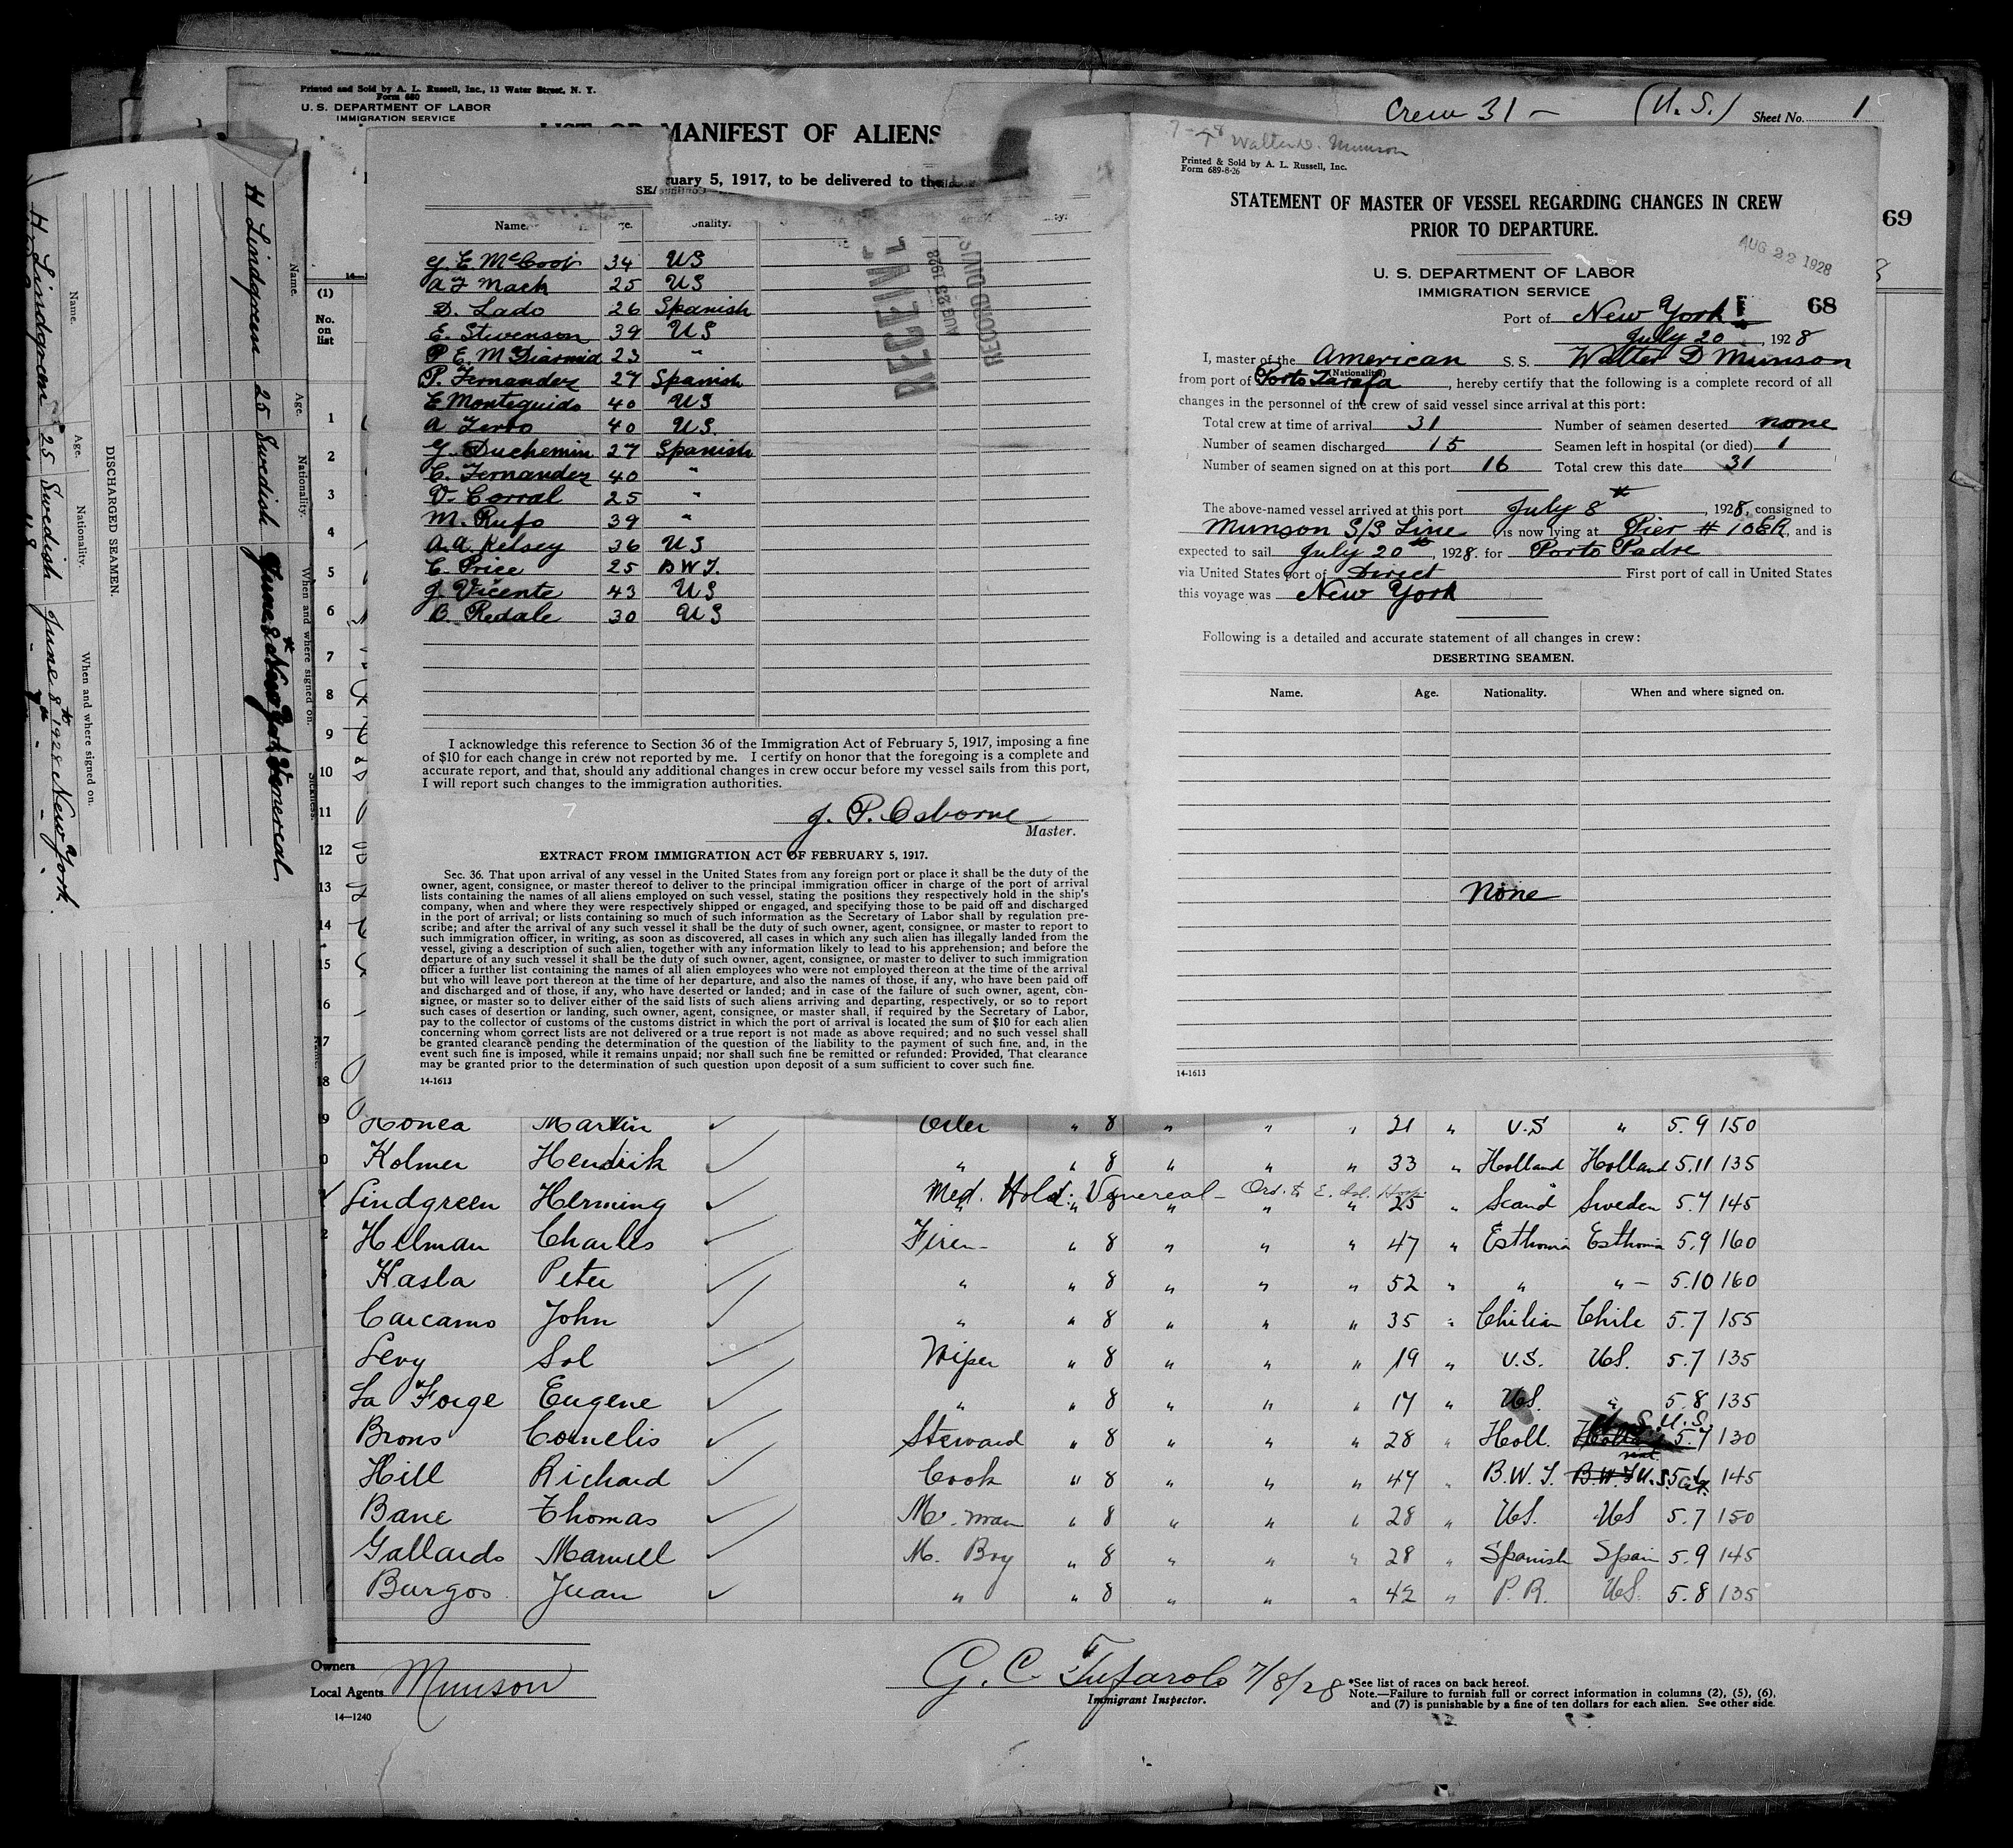 Printed and Sold by A. L. Russell, Inc., 13 Water Street, N. Y.
Form 680
U. S. DEPARTMENT OF LABOR
IMMIGRATION SERVICE
MANIFEST OF ALIENS
Crew 31 — (U.S.) Sheet No. 1
uary 5, 1917, to be delivered to the
69
Name. ge. onality.
G. E. McCoot 34 US
A F Mack 25 US
D. Lado 26 Spanish
E. Stvenson 39 US
P E. McDiarmid 23 "
P. Fernandez 27 Spanish
E Monteguido 40 US
A Ferro 40 US
G. Duchemin 27 Spanish
C. Fernandez 40 "
V. Corral 25 "
M. Rufo 39 "
A. A. Kelsey 36 US
C. Price 25 BWI.
J. Vicente 43 US
B. Redale 30 US
RECEIVED
AUG 23 1928
RECORD DIV
I acknowledge this reference to Section 36 of the Immigration Act of February 5, 1917, imposing a fine
of $10 for each change in crew not reported by me. I certify on honor that the foregoing is a complete and
accurate report, and that, should any additional changes in crew occur before my vessel sails from this port,
I will report such changes to the immigration authorities.
J. P. Osborne
Master.
EXTRACT FROM IMMIGRATION ACT OF FEBRUARY 5, 1917.
Sec. 36. That upon arrival of any vessel in the United States from any foreign port or place it shall be the duty of the
owner, agent, consignee, or master thereof to deliver to the principal immigration officer in charge of the port of arrival
lists containing the names of all aliens employed on such vessel, stating the positions they respectively hold in the ship's
company, when and where they were respectively shipped or engaged, and specifying those to be paid off and discharged
in the port of arrival; or lists containing so much of such information as the Secretary of Labor shall by regulation pre-
scribe; and after the arrival of any such vessel it shall be the duty of such owner, agent, consignee, or master to report to
such immigration officer, in writing, as soon as discovered, all cases in which any such alien has illegally landed from the
vessel, giving a description of such alien, together with any information likely to lead to his apprehension; and before the
departure of any such vessel it shall be the duty of such owner, agent, consignee, or master to deliver to such immigration
officer a further list containing the names of all alien employees who were not employed thereon at the time of the arrival
but who will leave port thereon at the time of her departure, and also the names of those, if any, who have been paid off
and discharged and of those, if any, who have deserted or landed; and in case of the failure of such owner, agent, con-
signee, or master so to deliver either of the said lists of such aliens arriving and departing, respectively, or so to report
such cases of desertion or landing, such owner, agent, consignee, or master shall, if required by the Secretary of Labor,
pay to the collector of customs of the customs district in which the port of arrival is located the sum of $10 for each alien
concerning whom correct lists are not delivered or a true report is not made as above required; and no such vessel shall
be granted clearance pending the determination of the question of the liability to the payment of such fine, and, in the
event such fine is imposed, while it remains unpaid; nor shall such fine be remitted or refunded: Provided, That clearance
may be granted prior to the determination of such question upon deposit of a sum sufficient to cover such fine.
14-1613
Walter D. Munson
Printed & Sold by A. L. Russell, Inc.
Form 689-8-26
STATEMENT OF MASTER OF VESSEL REGARDING CHANGES IN CREW
PRIOR TO DEPARTURE.
AUG 22 1928
U. S. DEPARTMENT OF LABOR
IMMIGRATION SERVICE
68
Port of New York
July 20, 1928
I, master of the American S. S. Walter D Munson
(Nationality)
from port of Porto Tarafa, hereby certify that the following is a complete record of all
changes in the personnel of the crew of said vessel since arrival at this port:
Total crew at time of arrival 31 Number of seamen deserted none
Number of seamen discharged 15 Seamen left in hospital (or died) 1
Number of seamen signed on at this port 16 Total crew this date 31
The above-named vessel arrived at this port July 8th, 1928, consigned to
Munson S/S Line is now lying at Pier # 10 ER, and is
expected to sail July 20th, 1928. for Porto Padre
via United States port of Direct First port of call in United States
this voyage was New York
Following is a detailed and accurate statement of all changes in crew:
DESERTING SEAMEN.
Name. Age. Nationality. When and where signed on.
None
14-1613
H Lindgreen 25 Swedish June 8th New York Venereal
Name. Age. Nationality. When and where signed on. Sickness.
DISCHARGED SEAMEN.
Name. Age. Nationality. When and where signed on.
H. Lindgreen 25 Swedish June 8th 1928 New York
(1)
No.
on
list
1
2
3
4
5
6
7
8
9
10
11
12
13
14
15
16
17
18
Martin Oiler " 8 " " " 21 " U.S " 5.9 150
Kolmer Hendrik " " 8 " " " 33 " Holland Holland 5.11 135
Med. Hold: Venereal – Ord. to E. Isl. Hosp.
Lindgreen Henning " " 8 " " " 25 " Scand Sweden 5.7 145
Helman Charles Firem- " 8 " " " 47 " Esthonia Esthonia 5.9 160
Kasba Peter " " 8 " " " 52 " " " 5.10 160
Carcamo John " " 8 " " " 35 " Chilian Chile 5.7 155
Levy Sol Wiper " 8 " " " 19 " U.S. US. 5.7 135
La Forge Eugene " " 8 " " " 17 " US. " 5.8 135
Brons Cornelis Steward " 8 " " " 28 " Holl. U.S. 5.7 130
Hill Richard Cook " 8 " " " 47 " B.W.I. B.W.I. U.S. Cit. 145
Bane Thomas M. man " 8 " " " 28 " US. US 5.7 150
Gallardo Manuell M. Boy " 8 " " " 28 " Spanish Spain 5.9 145
Burgos Juan " " 8 " " " 42 " P.R. US. 5.8 135
Owners
Local Agents Munson
14—1240
G. C. Tufarolo 7/8/28
Immigrant Inspector.
*See list of races on back hereof.
Note.—Failure to furnish full or correct information in columns (2), (5), (6),
and (7) is punishable by a fine of ten dollars for each alien. See other side.